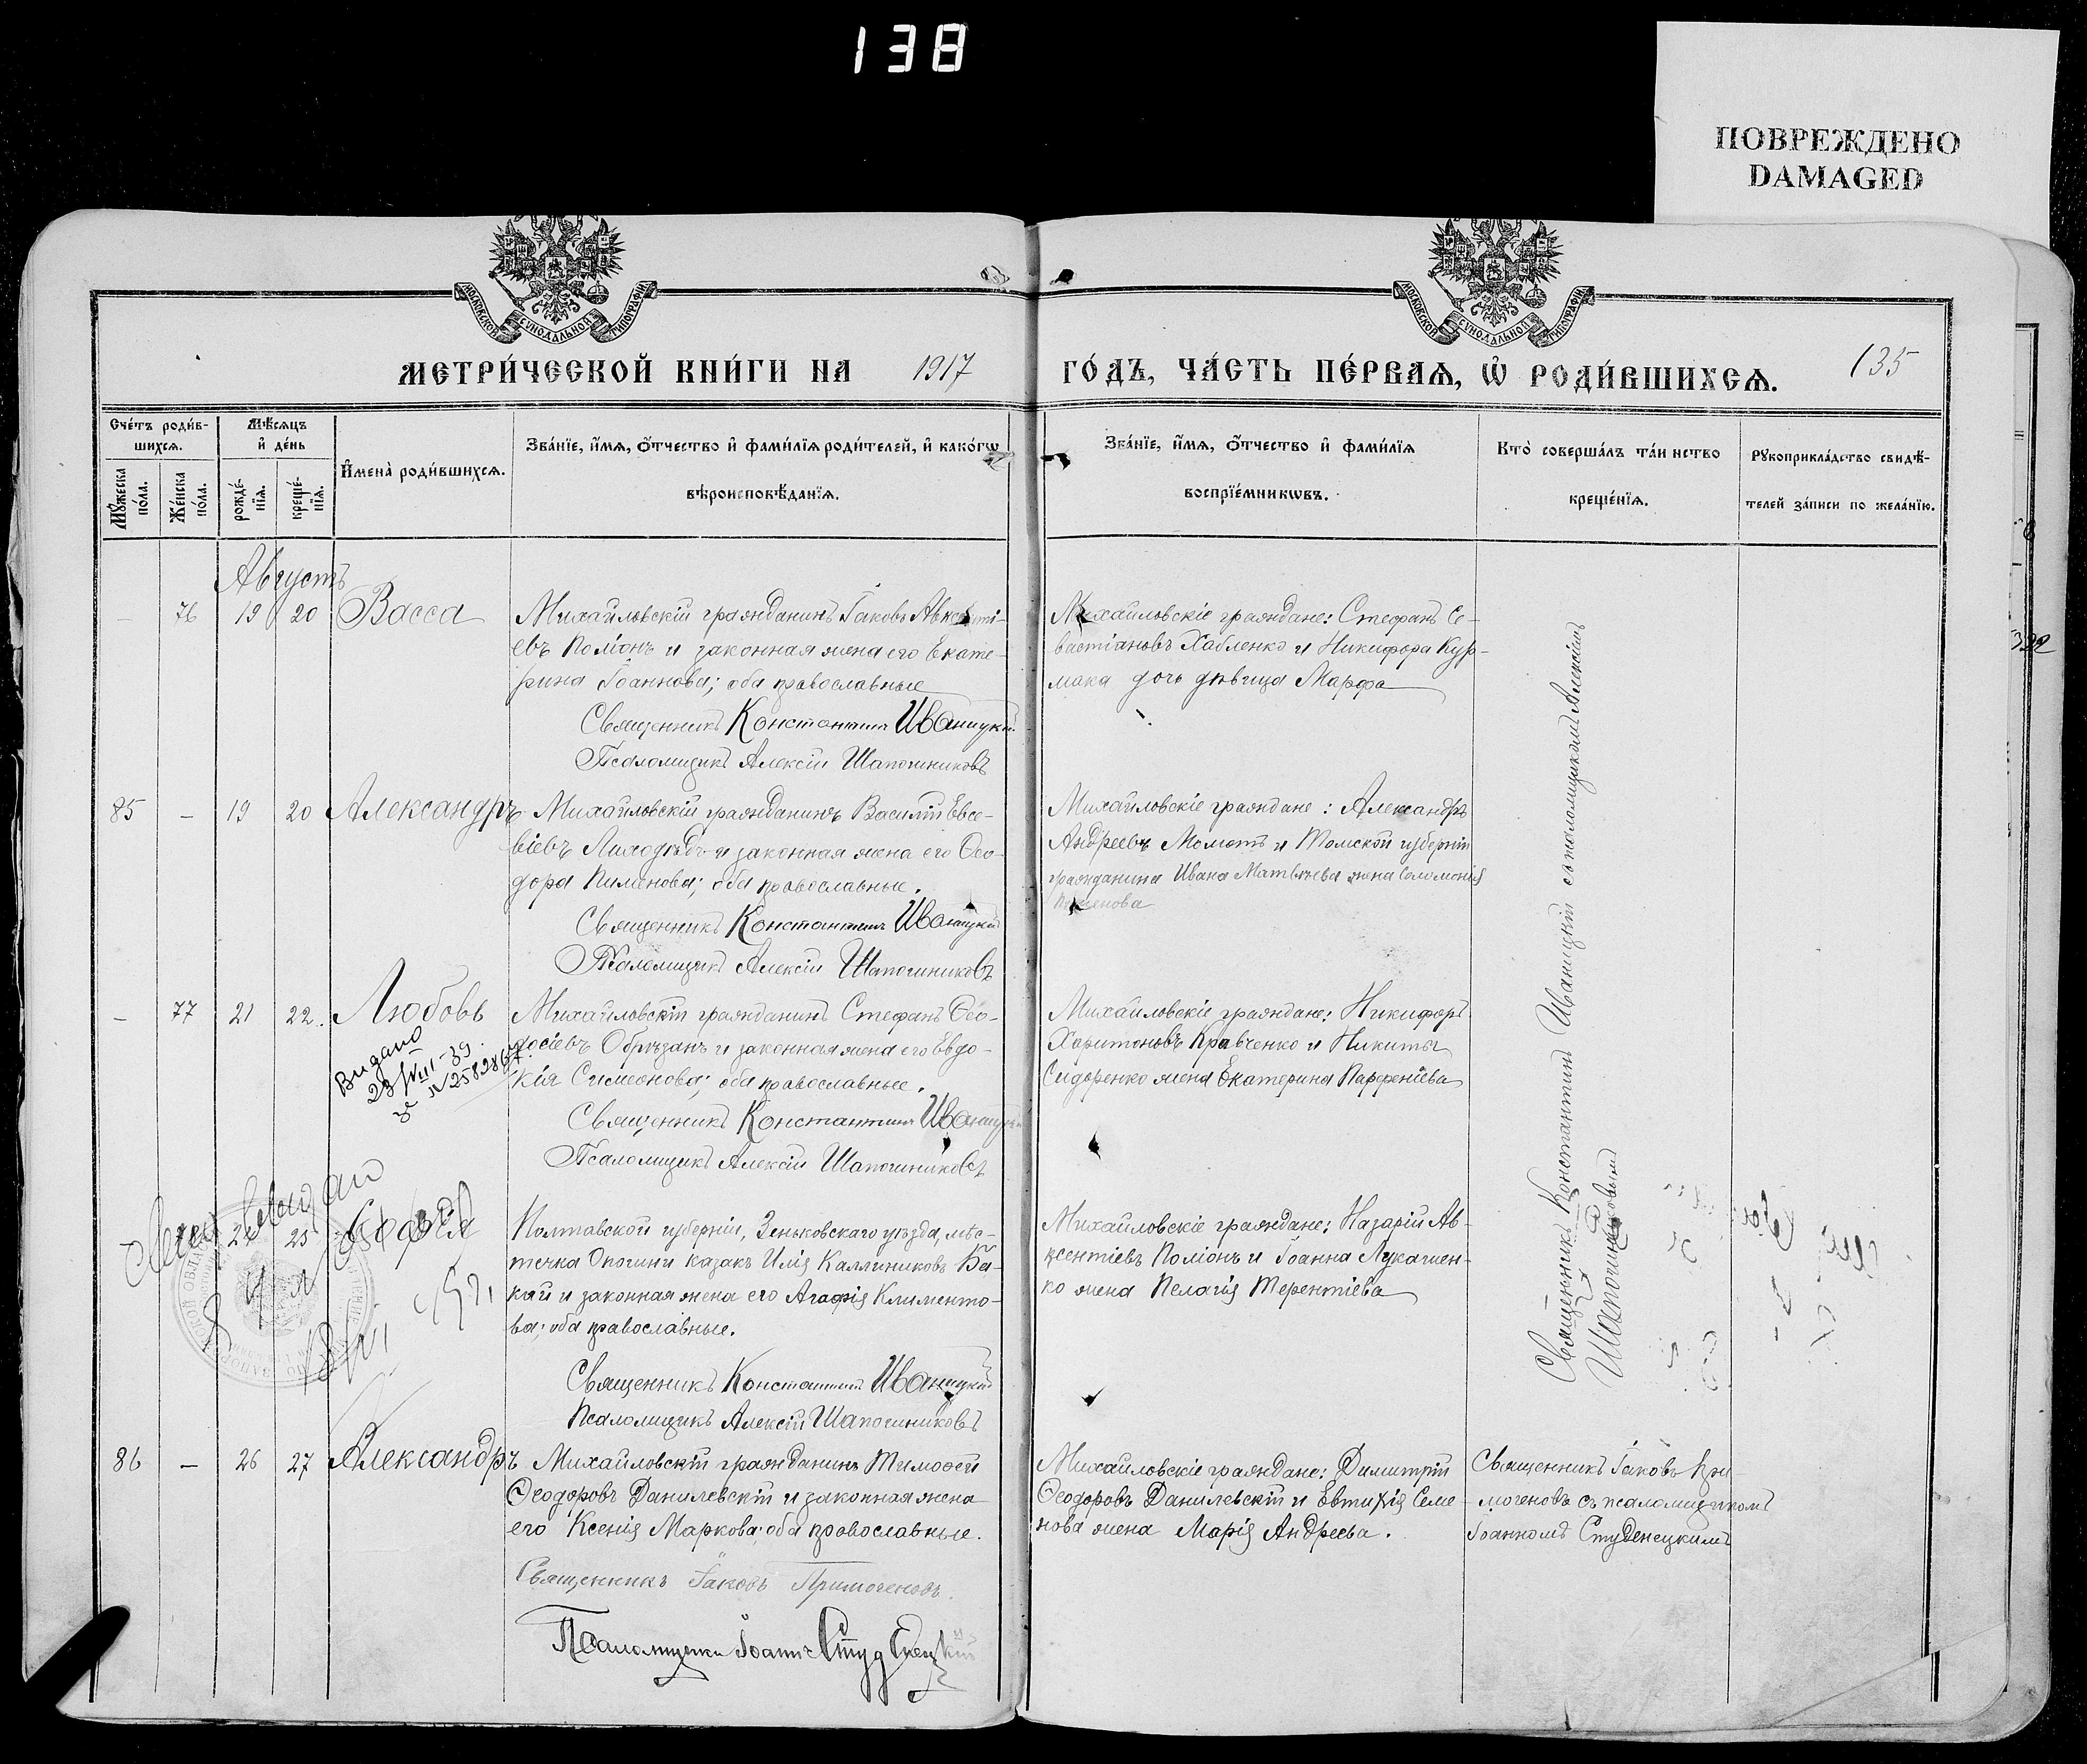 138
ПОВРЕЖДЕНО
DAMAGED
МОСКОВСКОЙ СѴНОДАЛЬНОЙ ТИПОГРАФІИ
МОСКОВСКОЙ СѴНОДАЛЬНОЙ ТИПОГРАФІИ
МЕТРИ́ЧЕСКОЙ КНИ́ГИ НА 1917 ГО́ДЪ, ЧА́СТЬ ПЕ́РВАѦ, Ѡ҆ РОДИ́ВШИХСѦ. 135
Сче́тъ роди́в-
шихсѧ.
Мꙋ́жеска по́ла.
Же́нска по́ла.
Мѣ́сѧцъ
и҆ де́нь
рожде́-
нїѧ.
креще́-
нїѧ.
И҆мена̀ роди́вшихсѧ.
Зва́нїе, и҆́мѧ, ѻ҆́тчество и҆ фами́лїѧ роди́телей, и҆ како́гѡ
вѣроисповѣ́данїѧ.
Зва́нїе, и҆́мѧ, ѻ҆́тчество и҆ фами́лїѧ
воспрїе́мникѡвъ.
Кто̀ соверша́лъ та́инство
креще́нїѧ.
Рꙋкоприкла́дство свидѣ́-
телей за́писи по жела́нїю.
Августъ
— 76 19 20 Васса
Михайловскій гражданинъ Іаковъ Авксенті-
евъ Поліонъ и законная жена его Екате-
рина Іоаннова; оба православные
Священникъ Константинъ Иваницкій
Псаломщикъ Алексій Шапошниковъ
Михайловскіе граждане: Стефанъ Се-
вастіановъ Хабленко и Никифора Кур-
мака дочь дѣвица Марфа
85 — 19 20 Александръ
Михайловскій гражданинъ Василій Евсе-
віевъ Лиходѣдъ и законная жена его Ѳео-
дора Пименова; оба православные.
Священникъ Константинъ Иваницкій
Псаломщикъ Алексій Шапошниковъ
Михайловскіе граждане: Александръ
Андреевъ Момотъ и Томской губерніи
гражданина Ивана Матвѣева жена Соломонія
— 77 21 22. Любовь
Видано
23/VIII-39.
за № 2582867
Михайловскій гражданинъ Стефанъ Ѳео-
досіевъ Обрѣзанъ и законная жена его Евдо-
кія Симеонова; оба православные.
Священникъ Константинъ Иваницкій
Псаломщикъ Алексій Шапошниковъ
Михайловскіе граждане: Никифоръ
Харитоновъ Кравченко и Никиты
Сидоренко жена Екатерина Парфеніева
24 25 Софія
Полтавской губерніи, Зеньковскаго уѣзда, мѣс-
течка Опошни казакъ Илія Каллиниковъ Ба-
кай и законная жена его Агафія Клименто-
ва; оба православные.
Священникъ Константинъ Иваницкій
Псаломщикъ Алексій Шапошниковъ
Михайловскіе граждане: Назарій Ав-
ксентіевъ Поліонъ и Іоанна Лукашен-
ко жена Пелагія Терентіева
Священникъ Константинъ Иваницкій съ псаломщикомъ Алексіемъ
Шапошниковымъ
86 — 26 27 Александръ
Михайловскій гражданинъ Тимоѳей
Ѳеодоровъ Данилевскій и законная жена
его Ксенія Маркова; оба православные.
Священникъ Іаковъ Примоченовъ.
Псаломщикъ Іоаннъ Студенецкій
Михайловскіе граждане: Димитрій
Ѳеодоровъ Данилевскій и Евтихія Семе-
нова жена Марія Андреева.
Священникъ Іаковъ При-
моченовъ съ псаломщикомъ
Іоанномъ Студенецкимъ